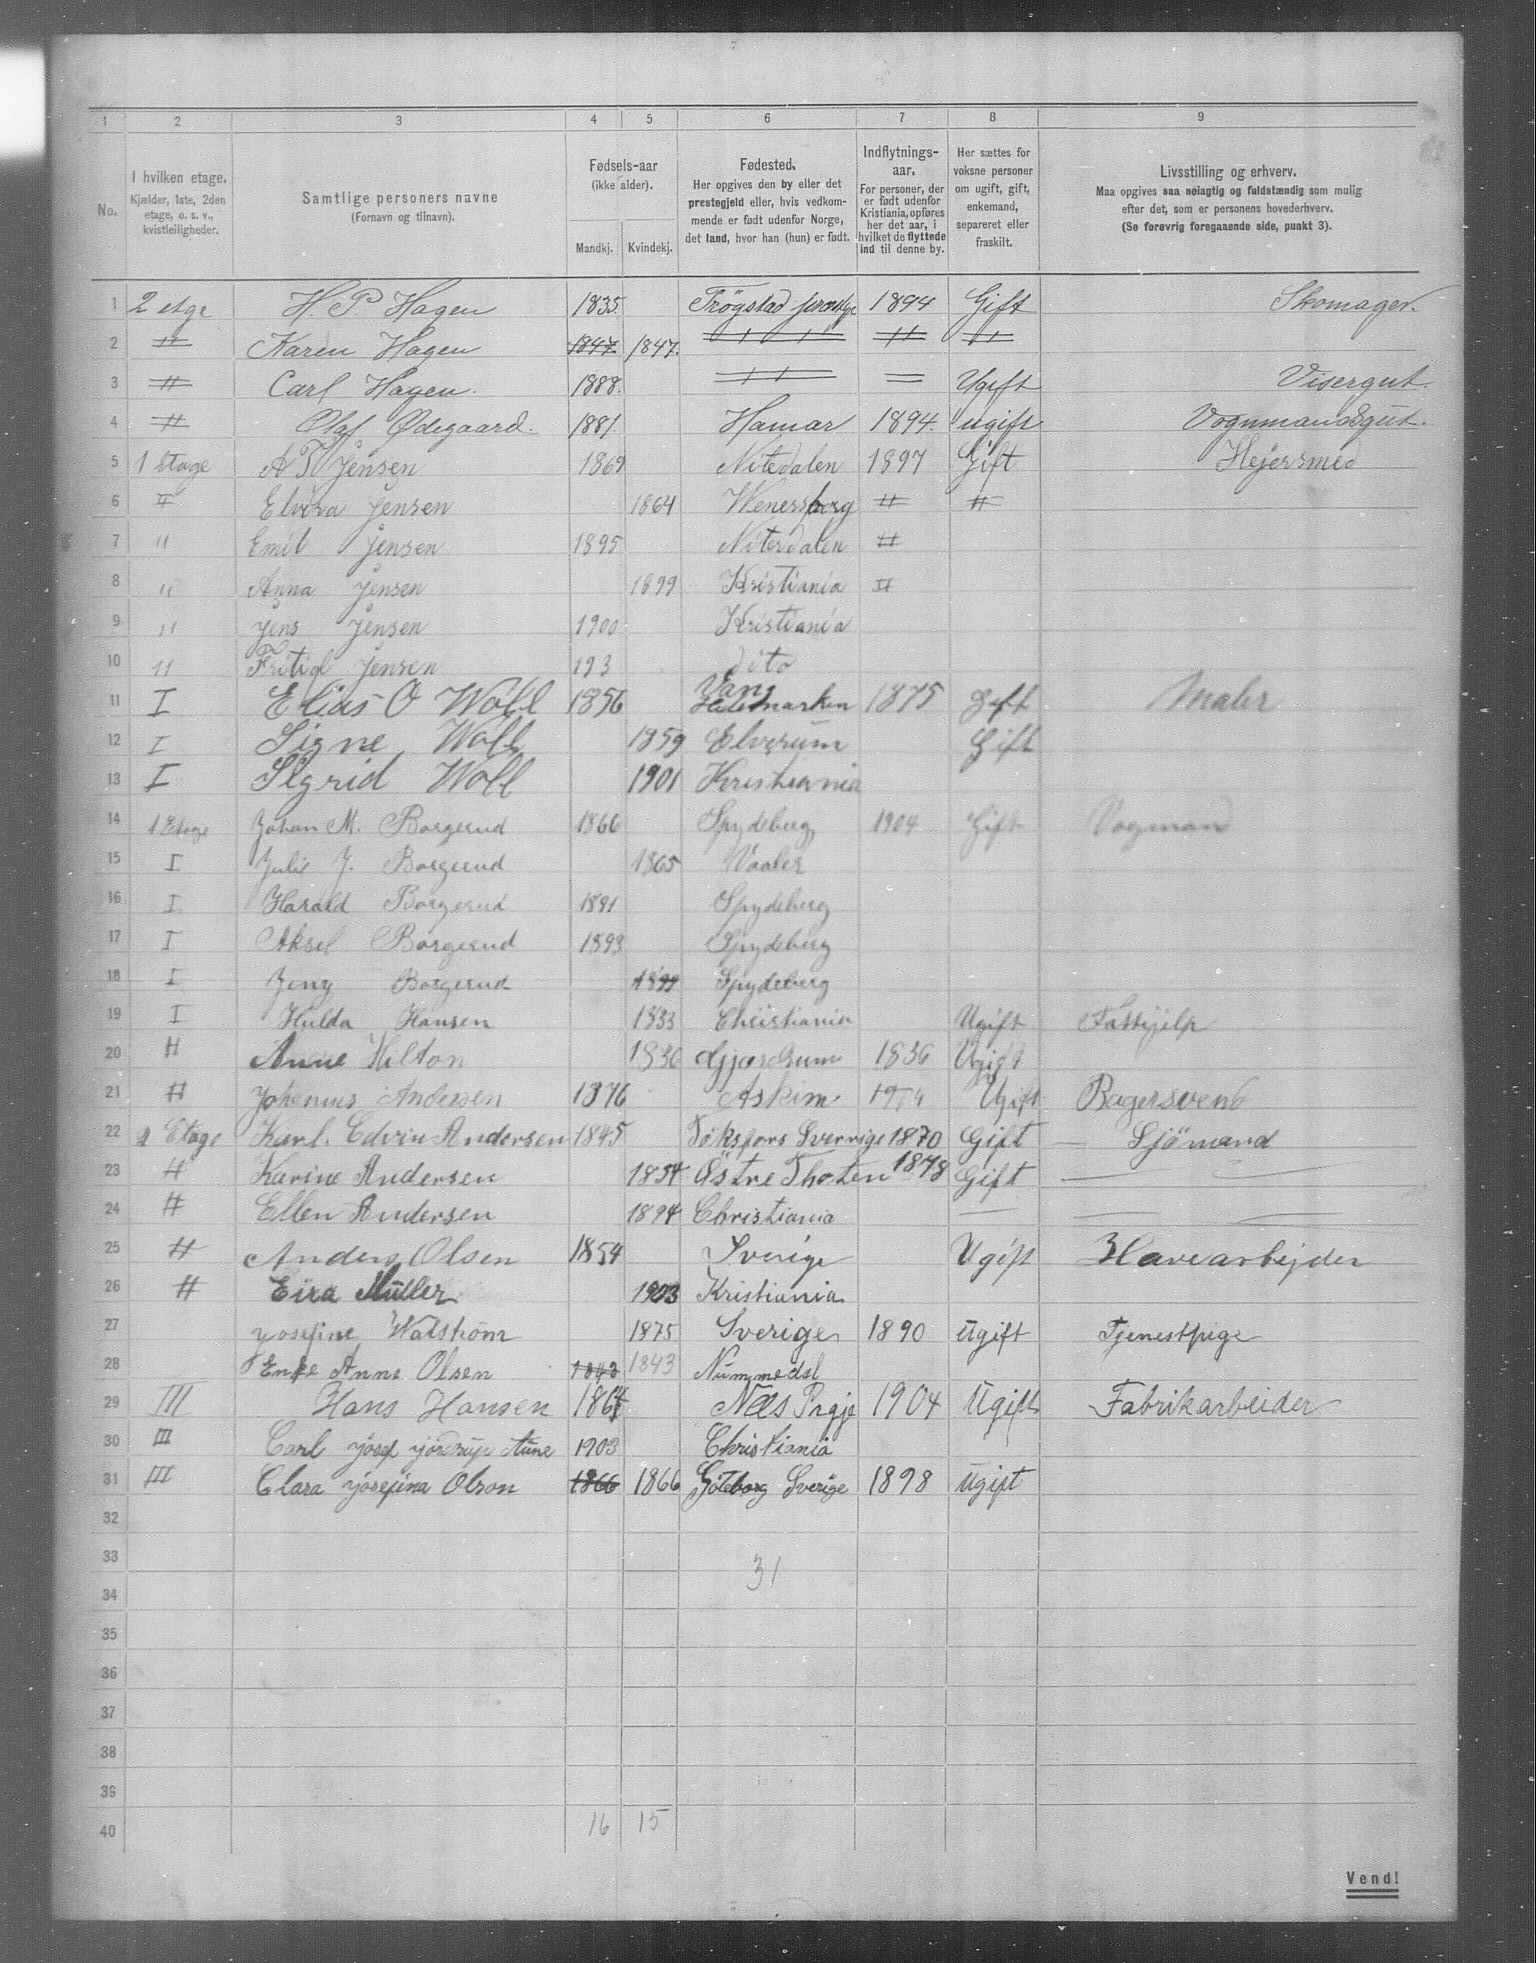 1 2 3 4 5 6 7 8 9
No.
I hvilken etage.
Kjælder, 1ste, 2den
etage, o. s. v.,
kvistleiligheder.
Samtlige personers navne
(Fornavn og tilnavn).
Fødsels-aar
(ikke alder).
Mandkj. Kvindekj.
Fødested.
Her opgives den by eller det
prestegjeld eller, hvis vedkom-
mende er født udenfor Norge,
det land, hvor han (hun) er født.
Indflytnings-
aar.
For personer, der
er født udenfor
Kristiania, opføres
her det aar, i
hvilket de flyttede
ind til denne by.
Her sættes for
voksne personer
om ugift, gift,
enkemand,
separeret eller
fraskilt.
Livsstilling og erhverv.
Maa opgives saa nøiagtig og fuldstændig som mulig
efter det, som er personens hovederhverv.
(Se forøvrig foregaaende side, punkt 3).
1 2 etge H. P Hagen 1835. Trögstad 1894 Gift Skomager.
2 " Karen Hagen 1847 1847. " " " "
3 " Carl Hagen. 1888. " " Ugift Visergut.
4 " Olaf Ødegaard. 1881 Hamar 1894. ugift Vognmandsgut.
5 1 Etage A T Jensen 1869 Nitedalen 1897 Gift Hejersmed
6 " Elvira Jensen 1864 Wenersborg " "
7 " Emil Jensen 1895 Niterdalen "
8 " Anna Jensen 1899 Kristiania "
9 " Jens Jensen 1900 Kristiania
10 " Fritiof Jensen 193 dito
11 I Elias O Woll 1856 Vang Hedemarken 1875 Gift Maler
12 I Signe Woll 1859 Elverum Gift
13 I Sigrid Woll 1901 Kristiania
14 1 Etage Johan M. Borgerud 1866 Spydeberg 1904 Gift Vogmand
15 I Julie J. Borgerud 1865 Vaaler
16 I Harald Borgerud 1891 Spydeberg
17 I Aksel Borgerud 1893 Spydeberg
18 I Jeny Borgerud 1899 Spydeberg
19 I Hulda Hansen 1883 Christiania Ugift
20 " Anne Hilton 1836 Gjærdrum 1856 Ugift
21 " Johenius Andersen 1876 Askim 1904 Ugift Bagersvend
22 2 Etage Karl. Edvin Andersen 1845 Töksfors Sverrige 1870 Gift — Sjömand
23 " Karine Andersen 1854 Östre Thoten 1878 Gift —
24 " Ellen Andersen 1894 Christiania — —
25 " Anders Olsen 1854 Sverige Ugift Havearbejder
26 " Eira Müller 1903 Kristiania
27 Josefine Walström 1875 Sverige 1890 ugift Tjenestpige
28 Enke Anne Olsen 1843 1843 Nummedal
29 III Hans Hansen 1864 Næs 1904 Ugift Fabrikarbeider
30 III Carl Josef Aune 1903 Christiania
31 III Clara Josefina Olson 1866 1866 Göteborg Sverige 1898 ugift
32
33 31
34
35
36
37
38
39
40 16 15
Vend!